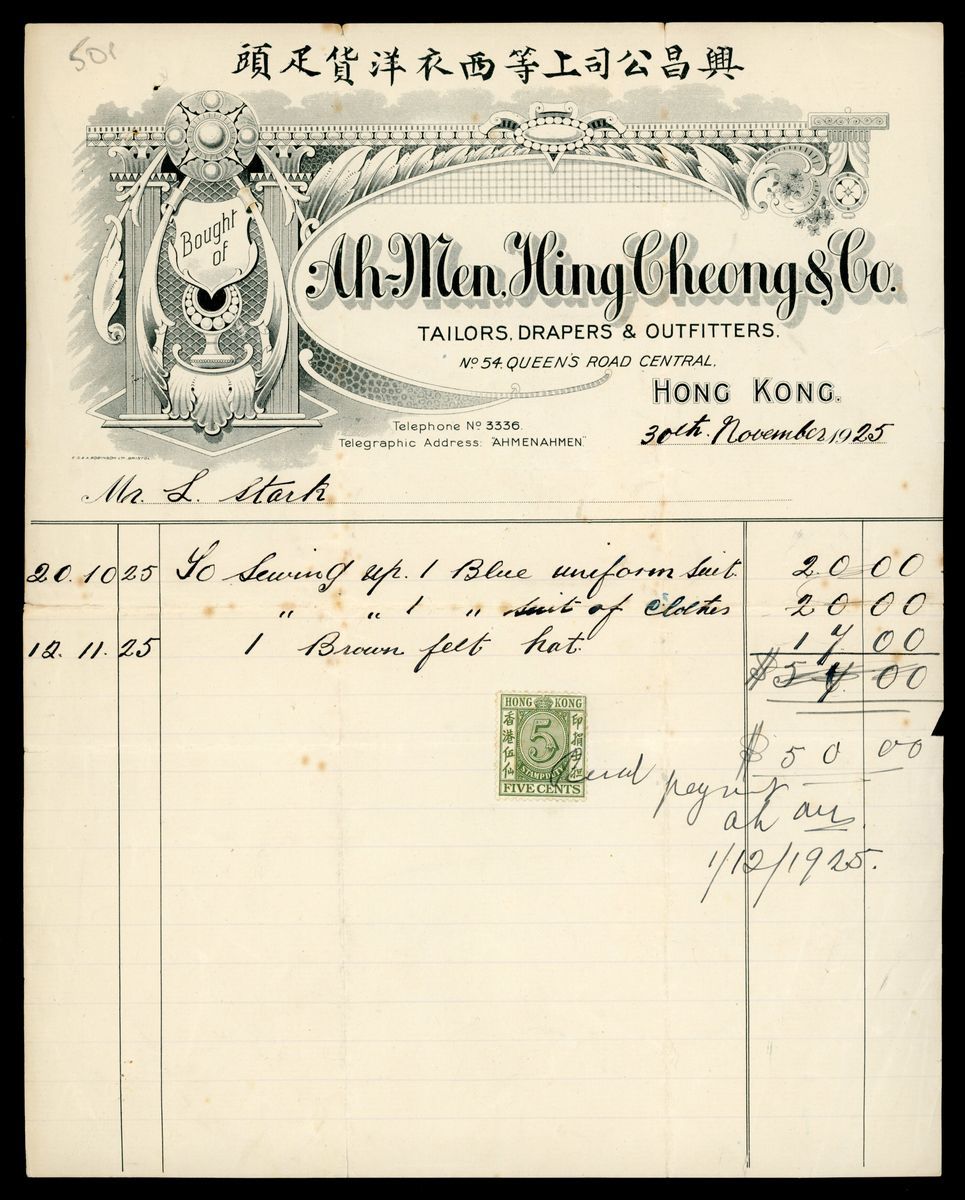 50/
興昌公司上等西衣洋貨足頭
Bought
of
Ah-Men, Hing Cheong & Co.
TAILORS, DRAPERS & OUTFITTERS.
No 54. QUEEN'S ROAD CENTRAL,
HONG KONG.
Telephone No 3336.
Telegraphic Address: "AHMENAHMEN"
30th. November, 1925
E.S. & A. ROBINSON LTD. BRISTOL
Mr. L. Stark
20.10 25 To Sewing up. 1 Blue uniform suit. 20 00
" " 1 " suit of clothes 20 00
12. 11. 25 1 Brown felt hat. 17 00
$57 00
HONG KONG
香港伍仙
5
印捐
STAMP DUTY
FIVE CENTS
$50 00
payment
ah
1/12/1925.